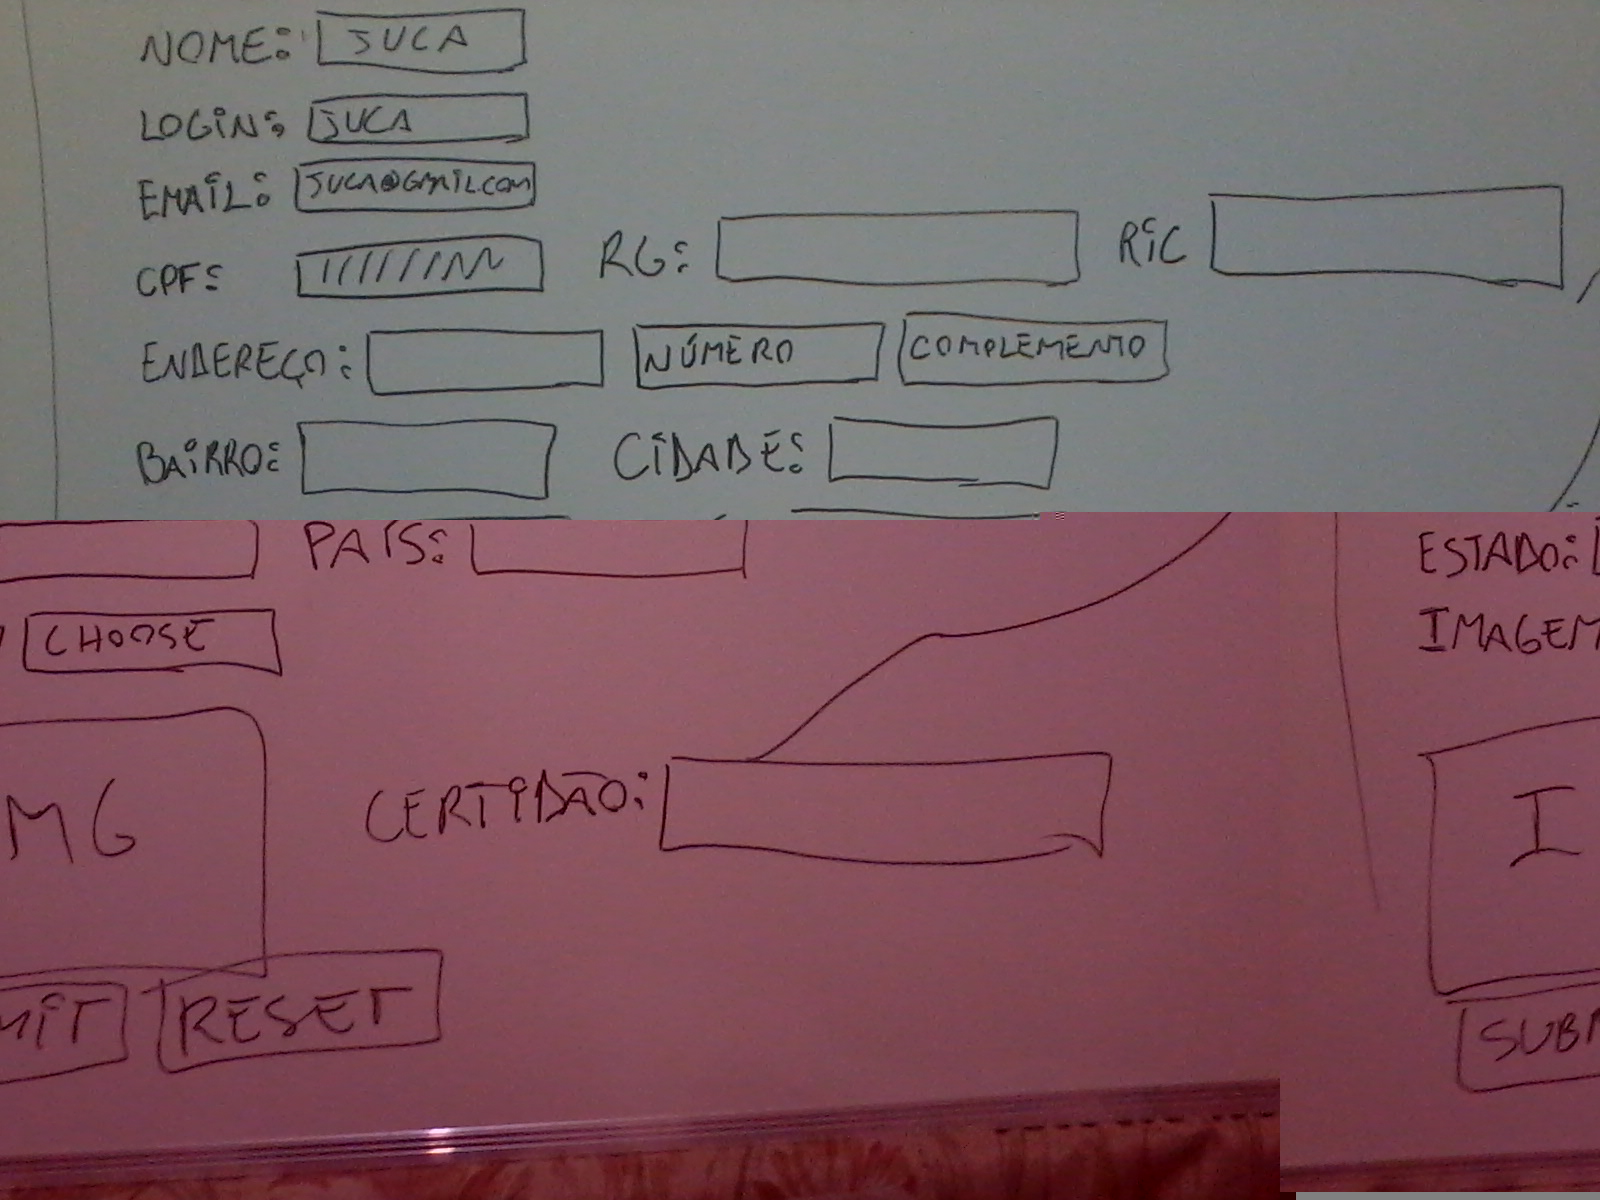 NOME: JUCA
LOGIN: JUCA
EMAIL: JUCA@GMAIL.COM
CPF: RG: RIC
ENDEREÇO: NÚMERO COMPLEMENTO
BAIRRO: CIDADE:
PAÍS: ESTADO:
CHOOSE IMAGEM
MG CERTIDÃO: I
MIT RESET SUBM